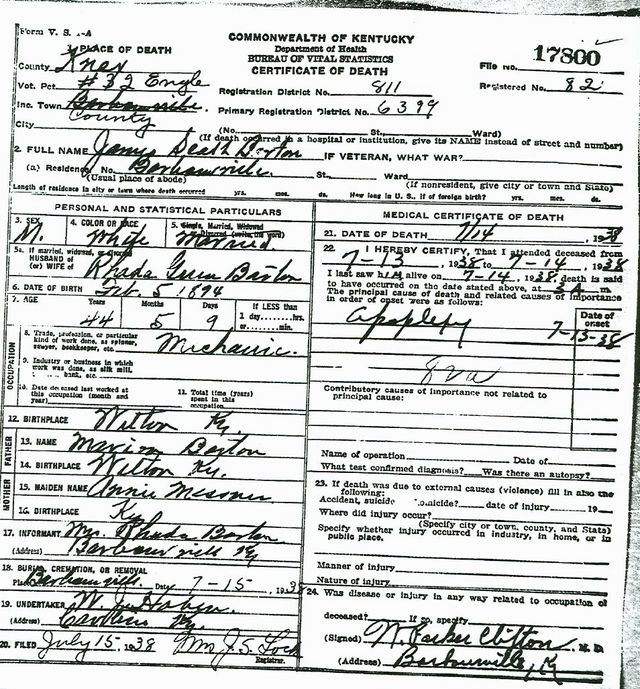 Form V. S. 1-A
COMMONWEALTH OF KENTUCKY
Department of Health
BUREAU OF VITAL STATISTICS
CERTIFICATE OF DEATH
1. PLACE OF DEATH
County Knox
Vot. Pct. #32 Engle
Inc. Town Barbourville
County
City
File No. 17800
Registration District No. 811
Registered No. 82
Primary Registration District No. 6399
(No. St., Ward)
(If death occurred in a hospital or institution, give its NAME instead of street and number)
2. FULL NAME James Death Barton IF VETERAN, WHAT WAR?
(a) Residence, No. Barbourville St., Ward
(Usual place of abode) (If nonresident, give city or town and State)
Length of residence in city or town where death occurred yrs. mos. ds. How long in U. S., if of foreign birth? yrs. mos. ds.
PERSONAL AND STATISTICAL PARTICULARS
3. SEX M.
4. COLOR OR RACE White
5. Single, Married, Widowed or Divorced (write the word) Married
5a. If married, widowed, or divorced
HUSBAND of
(or) WIFE of Rhoda Green Barton
6. DATE OF BIRTH Feb. 5 1894
7. AGE Years Months Days If LESS than
1 day, hrs.
44 5 9 or min.
OCCUPATION
8. Trade, profession, or particular
kind of work done, as spinner,
sawyer, bookkeeper, etc. Mechanic.
9. Industry or business in which
work was done, as silk mill,
bank, etc.
10. Date deceased last worked at
this occupation (month and
year)
11. Total time (years)
spent in this
occupation
12. BIRTHPLACE Wilton Ky.
FATHER
13. NAME Marion Barton
14. BIRTHPLACE Wilton Ky.
MOTHER
15. MAIDEN NAME Annie Messer
16. BIRTHPLACE Ky
17. INFORMANT Mrs. Rhoda Barton
(Address) Barbourville Ky
18. BURIAL, CREMATION, OR REMOVAL
Place Barbourville. Date 7-15, 1938
19. UNDERTAKER W. J.
(Address) Ky.
20. FILED July 15 38 Mrs J. S. Lock
Registrar.
MEDICAL CERTIFICATE OF DEATH
21. DATE OF DEATH 7/14, 1938
22. I HEREBY CERTIFY, That I attended deceased from
7-13, 1938 to -14, 1938
I last saw him alive on 7-14, 1938, death is said
to have occurred on the date stated above, at 3 A m.
The principal cause of death and related causes of importance
in order of onset were as follows:
Date of
onset
Apoplexy 7-13-38
82a
Contributory causes of importance not related to
principal cause:
Name of operation Date of
What test confirmed diagnosis? Was there an autopsy?
23. If death was due to external causes (violence) fill in also the
following:
Accident, suicide omicide? date of injury 19
Where did injury occur?
(Specify city or town, county, and State)
Specify whether injury occurred in industry, in home, or in
public place.
Manner of injury
Nature of injury
24. Was disease or injury in any way related to occupation of
deceased? If so, specify
(Signed) N. Parker Clifton M. D.
(Address) Barbourville, Ky